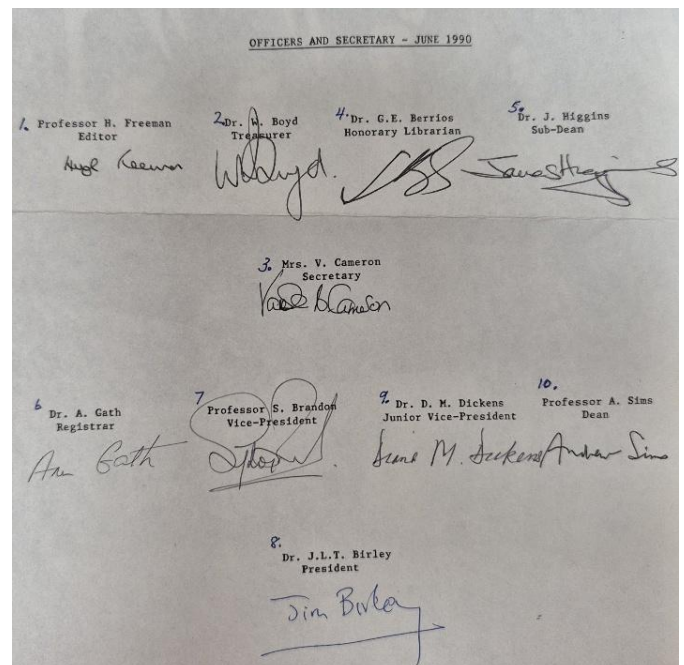 OFFICERS AND SECRETARY - JUNE 1990
1. Professor H. Freeman
Editor
Hugh Freeman
2. Dr. W. Boyd
Treasurer
W Boyd.
4. Dr. G.E. Berrios
Honorary Librarian
5. Dr. J. Higgins
Sub-Dean
James Higgins
3. Mrs. V. Cameron
Secretary
Vanessa B Cameron
6 Dr. A. Gath
Registrar
Ann Gath
7 Professor S. Brandon
Vice-President
9. Dr. D. M. Dickens
Junior Vice-President
Diana M. Dickens
10. Professor A. Sims
Dean
Andrew Sims
8. Dr. J.L.T. Birley
President
Jim Birley